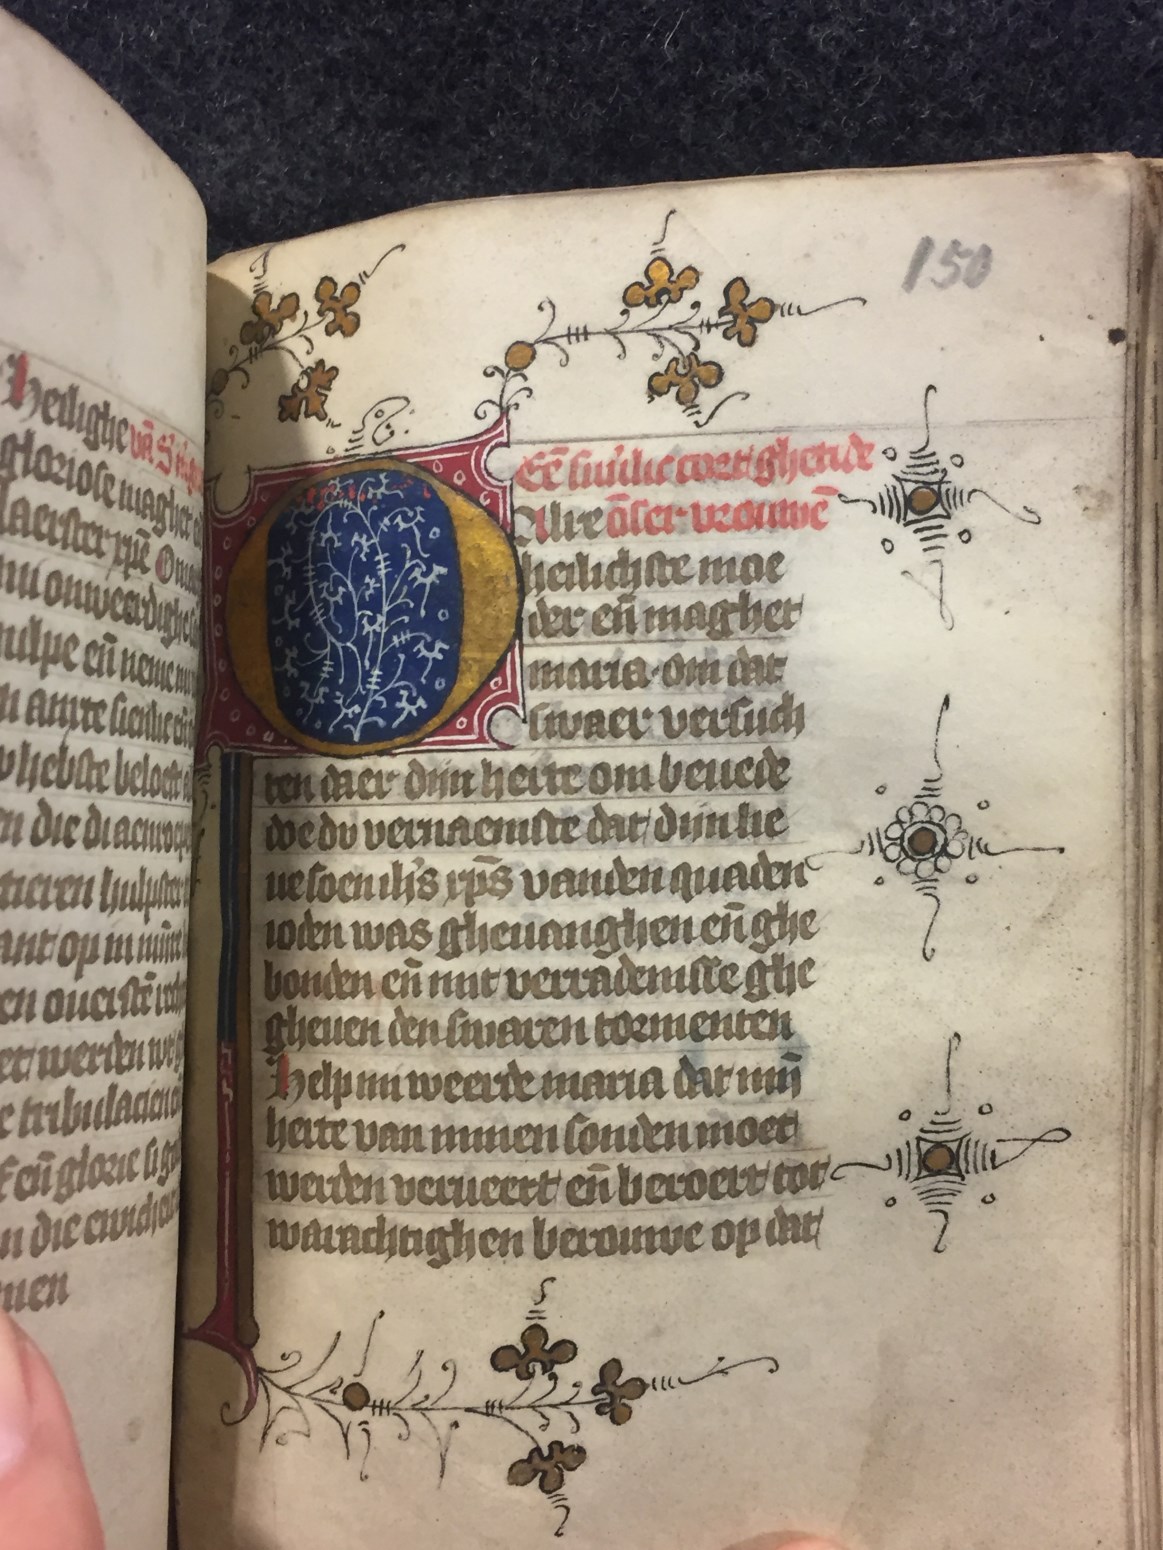 Heilighe vā S
gloriose maghet
laerster xpē O
nu onweerdighe
hulpe eñ neme
v liefste
en die
tieren hulpster
ant op
en
et werden
e tribulacien
eñ glorie si
n die ewicheit
uen
150
Eē suuerlic cort ghetide
Alre ōser vrouwē
O heilichste moe
der eñ maghet
maria om dat
swaer versuch
ten daer dijn herte om beuede
doe du vernaemste dat dijn lie
ue soen ihs xps vanden quaden
ioden was gheuanghen eñ ghe
bonden eñ mit verradenisse ghe
gheuen den swaren tormenten
Help mi weerde maria dat mijn
herte van minen sonden moet
werden verueert eñ beroert tot
warachtighen berouwe op dat